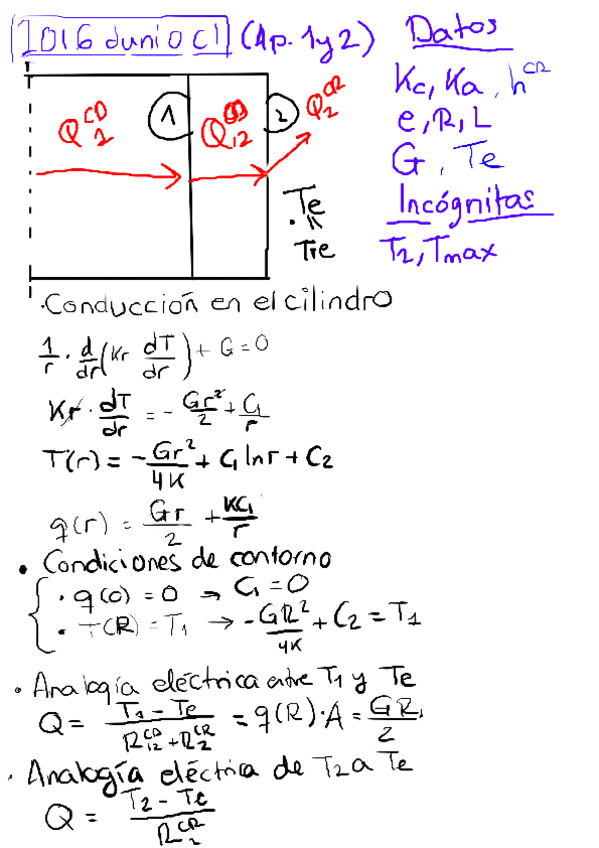 2016 Junio C1 (Ap. 1 y 2)
Datos
Kc, Ka, h^CR
e, R, L
G, Te
Incógnitas
T2, Tmax
Q1^CD
1
Q12^CD
2
Q2^CR
Te
TRe
·Conducción en el cilindro
1/r · d/dr (Kr dT/dr) + G = 0
Kr · dT/dr = - Gr²/2 + C1/r
T(r) = - Gr²/4K + C1 ln r + C2
q(r) = Gr/2 + KC1/r
• Condiciones de contorno
· q(0) = 0 → C1 = 0
· T(R) = T1 → - GR²/4K + C2 = T1
· Analogía eléctrica entre T1 y Te
Q = (T1 - Te)/(R12^CD + R2^CR) = q(R)·A = GR/2
· Analogía eléctrica de T2 a Te
Q = (T2 - Te)/R2^CR